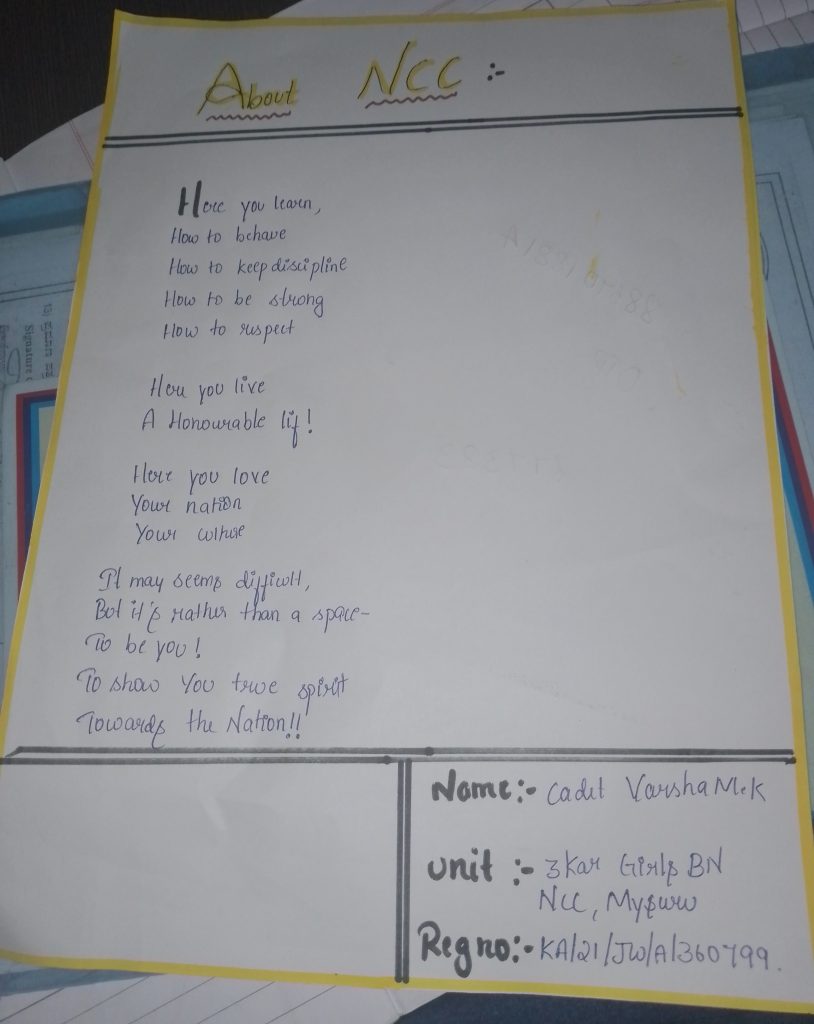 About NCC :-
Here you learn,
How to behave
How to keep discipline
How to be strong
How to respect
Here you live
A Honourable lif!
Here you love
Your nation
Your culture
It may seems difficult,
But it's rather than a space-
To be you!
To show You true spirit
Towards the Nation!!
Name:- Cadet Varsha M.K
unit :- 3 Kar Girls BN
NCC, Mysuru
Reg no:- KA/21/JW/A/360799.
Signature